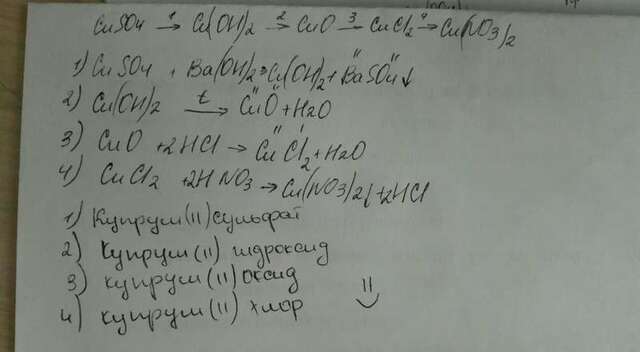 CuSO4 1→ Cu(OH)2 2→ CuO 3→ CuCl2 4→ Cu(NO3)2
1) CuSO4 + Ba(OH)2 → Cu(OH)2 + BaSO4↓
2) Cu(OH)2 t→ CuO + H2O
3) CuO + 2HCl → CuCl2 + H2O
4) CuCl2 + 2HNO3 → Cu(NO3)2 + 2HCl
1) Купрум (II) сульфат
2) Купрум (II) гідроксид
3) купрум (II) оксид
4) купрум (II) хлор